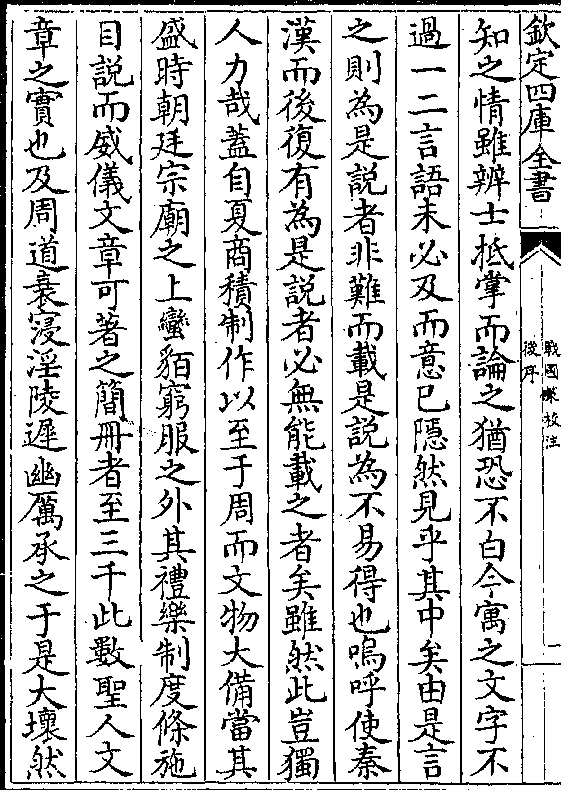 欽定四庫全書
戰國策校注
後序
知之情雖辨士抵掌而論之猶恐不白今寓之文字不
過一二言語未必及而意已隱然見乎其中矣由是言
之則為是説者非難而載是説為不易得也嗚呼使秦
漢而後復有為是説者必無能載之者矣雖然此豈獨
人力哉蓋自夏商積制作以至于周而文物大備當其
盛時朝廷宗廟之上蠻貊窮服之外其禮樂制度條施
目説而威儀文章可著之簡冊者至三千此數聖人文
章之實也及周道衰寖淫陵遲幽厲承之于是大壞然